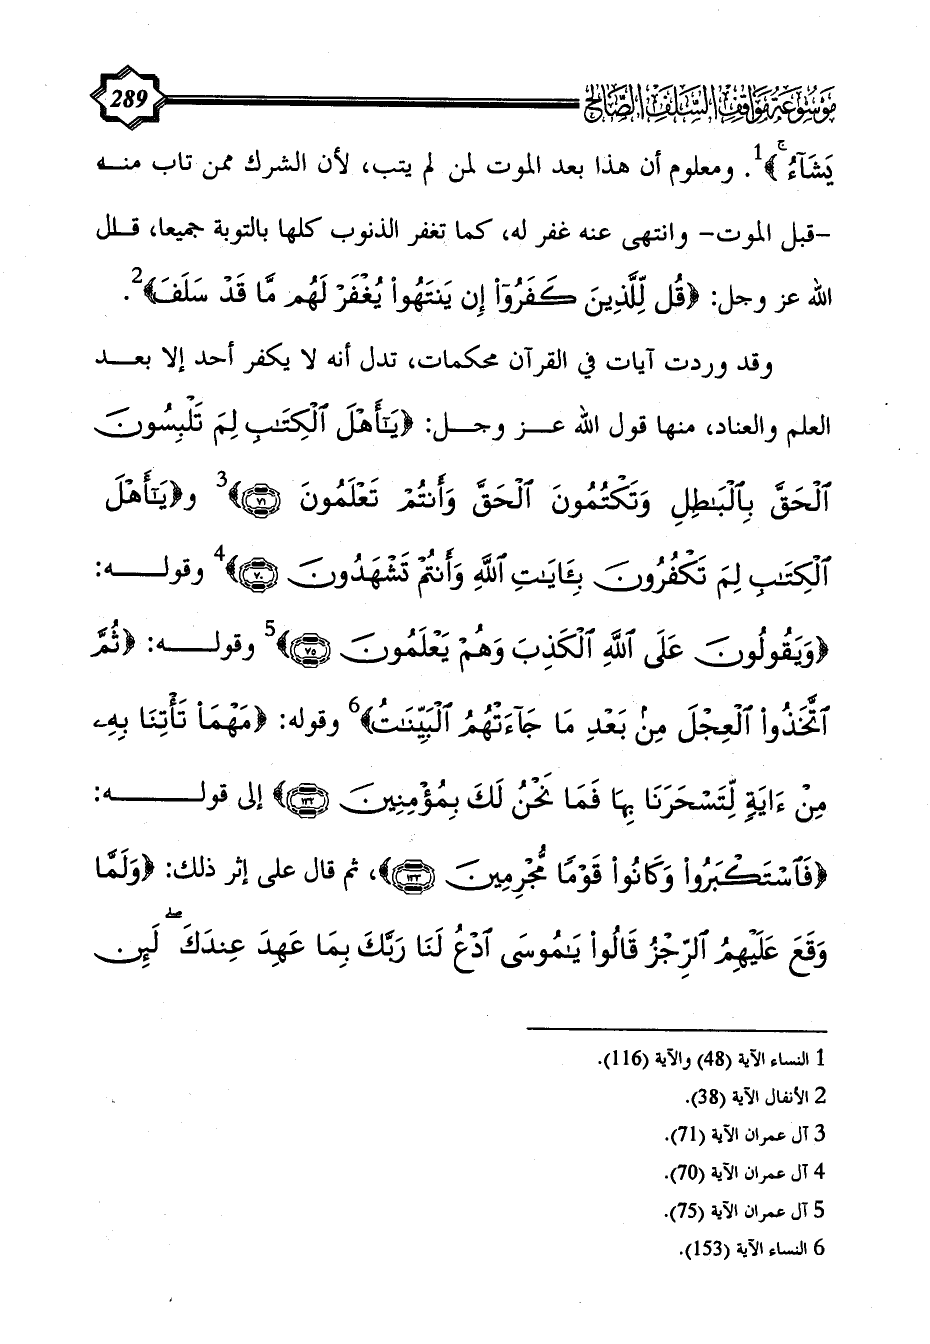 موسوعة مواقف السلف الصالح 289
يَشَآءُ ۚ﴾1. ومعلوم أن هذا بعد الموت لمن لم يتب، لأن الشرك ممن تاب منه
-قبل الموت- وانتهى عنه غفر له، كما تغفر الذنوب كلها بالتوبة جميعا، قال
الله عز وجل: ﴿قُل لِّلَّذِينَ كَفَرُوٓاْ إِن يَنتَهُواْ يُغْفَرْ لَهُم مَّا قَدْ سَلَفَ﴾2.
وقد وردت آيات في القرآن محكمات، تدل أنه لا يكفر أحد إلا بعد
العلم والعناد، منها قول الله عز وجل: ﴿يَٰٓأَهْلَ ٱلْكِتَٰبِ لِمَ تَلْبِسُونَ
ٱلْحَقَّ بِٱلْبَٰطِلِ وَتَكْتُمُونَ ٱلْحَقَّ وَأَنتُمْ تَعْلَمُونَ ٧١﴾3 و﴿يَٰٓأَهْلَ
ٱلْكِتَٰبِ لِمَ تَكْفُرُونَ بِـَٔايَٰتِ ٱللَّهِ وَأَنتُمْ تَشْهَدُونَ ٧٠﴾4 وقوله:
﴿وَيَقُولُونَ عَلَى ٱللَّهِ ٱلْكَذِبَ وَهُمْ يَعْلَمُونَ ٧٥﴾5 وقوله: ﴿ثُمَّ
ٱتَّخَذُواْ ٱلْعِجْلَ مِنۢ بَعْدِ مَا جَآءَتْهُمُ ٱلْبَيِّنَٰتُ﴾6 وقوله: ﴿مَهْمَا تَأْتِنَا بِهِۦ
مِنْ ءَايَةٍ لِّتَسْحَرَنَا بِهَا فَمَا نَحْنُ لَكَ بِمُؤْمِنِينَ ١٣٢﴾ إلى قوله:
﴿فَٱسْتَكْبَرُواْ وَكَانُواْ قَوْمًا مُّجْرِمِينَ ١٣٣﴾، ثم قال على إثر ذلك: ﴿وَلَمَّا
وَقَعَ عَلَيْهِمُ ٱلرِّجْزُ قَالُواْ يَٰمُوسَى ٱدْعُ لَنَا رَبَّكَ بِمَا عَهِدَ عِندَكَ ۖ لَئِن
1 النساء الآية (48) والآية (116).
2 الأنفال الآية (38).
3 آل عمران الآية (71).
4 آل عمران الآية (70).
5 آل عمران الآية (75).
6 النساء الآية (153).